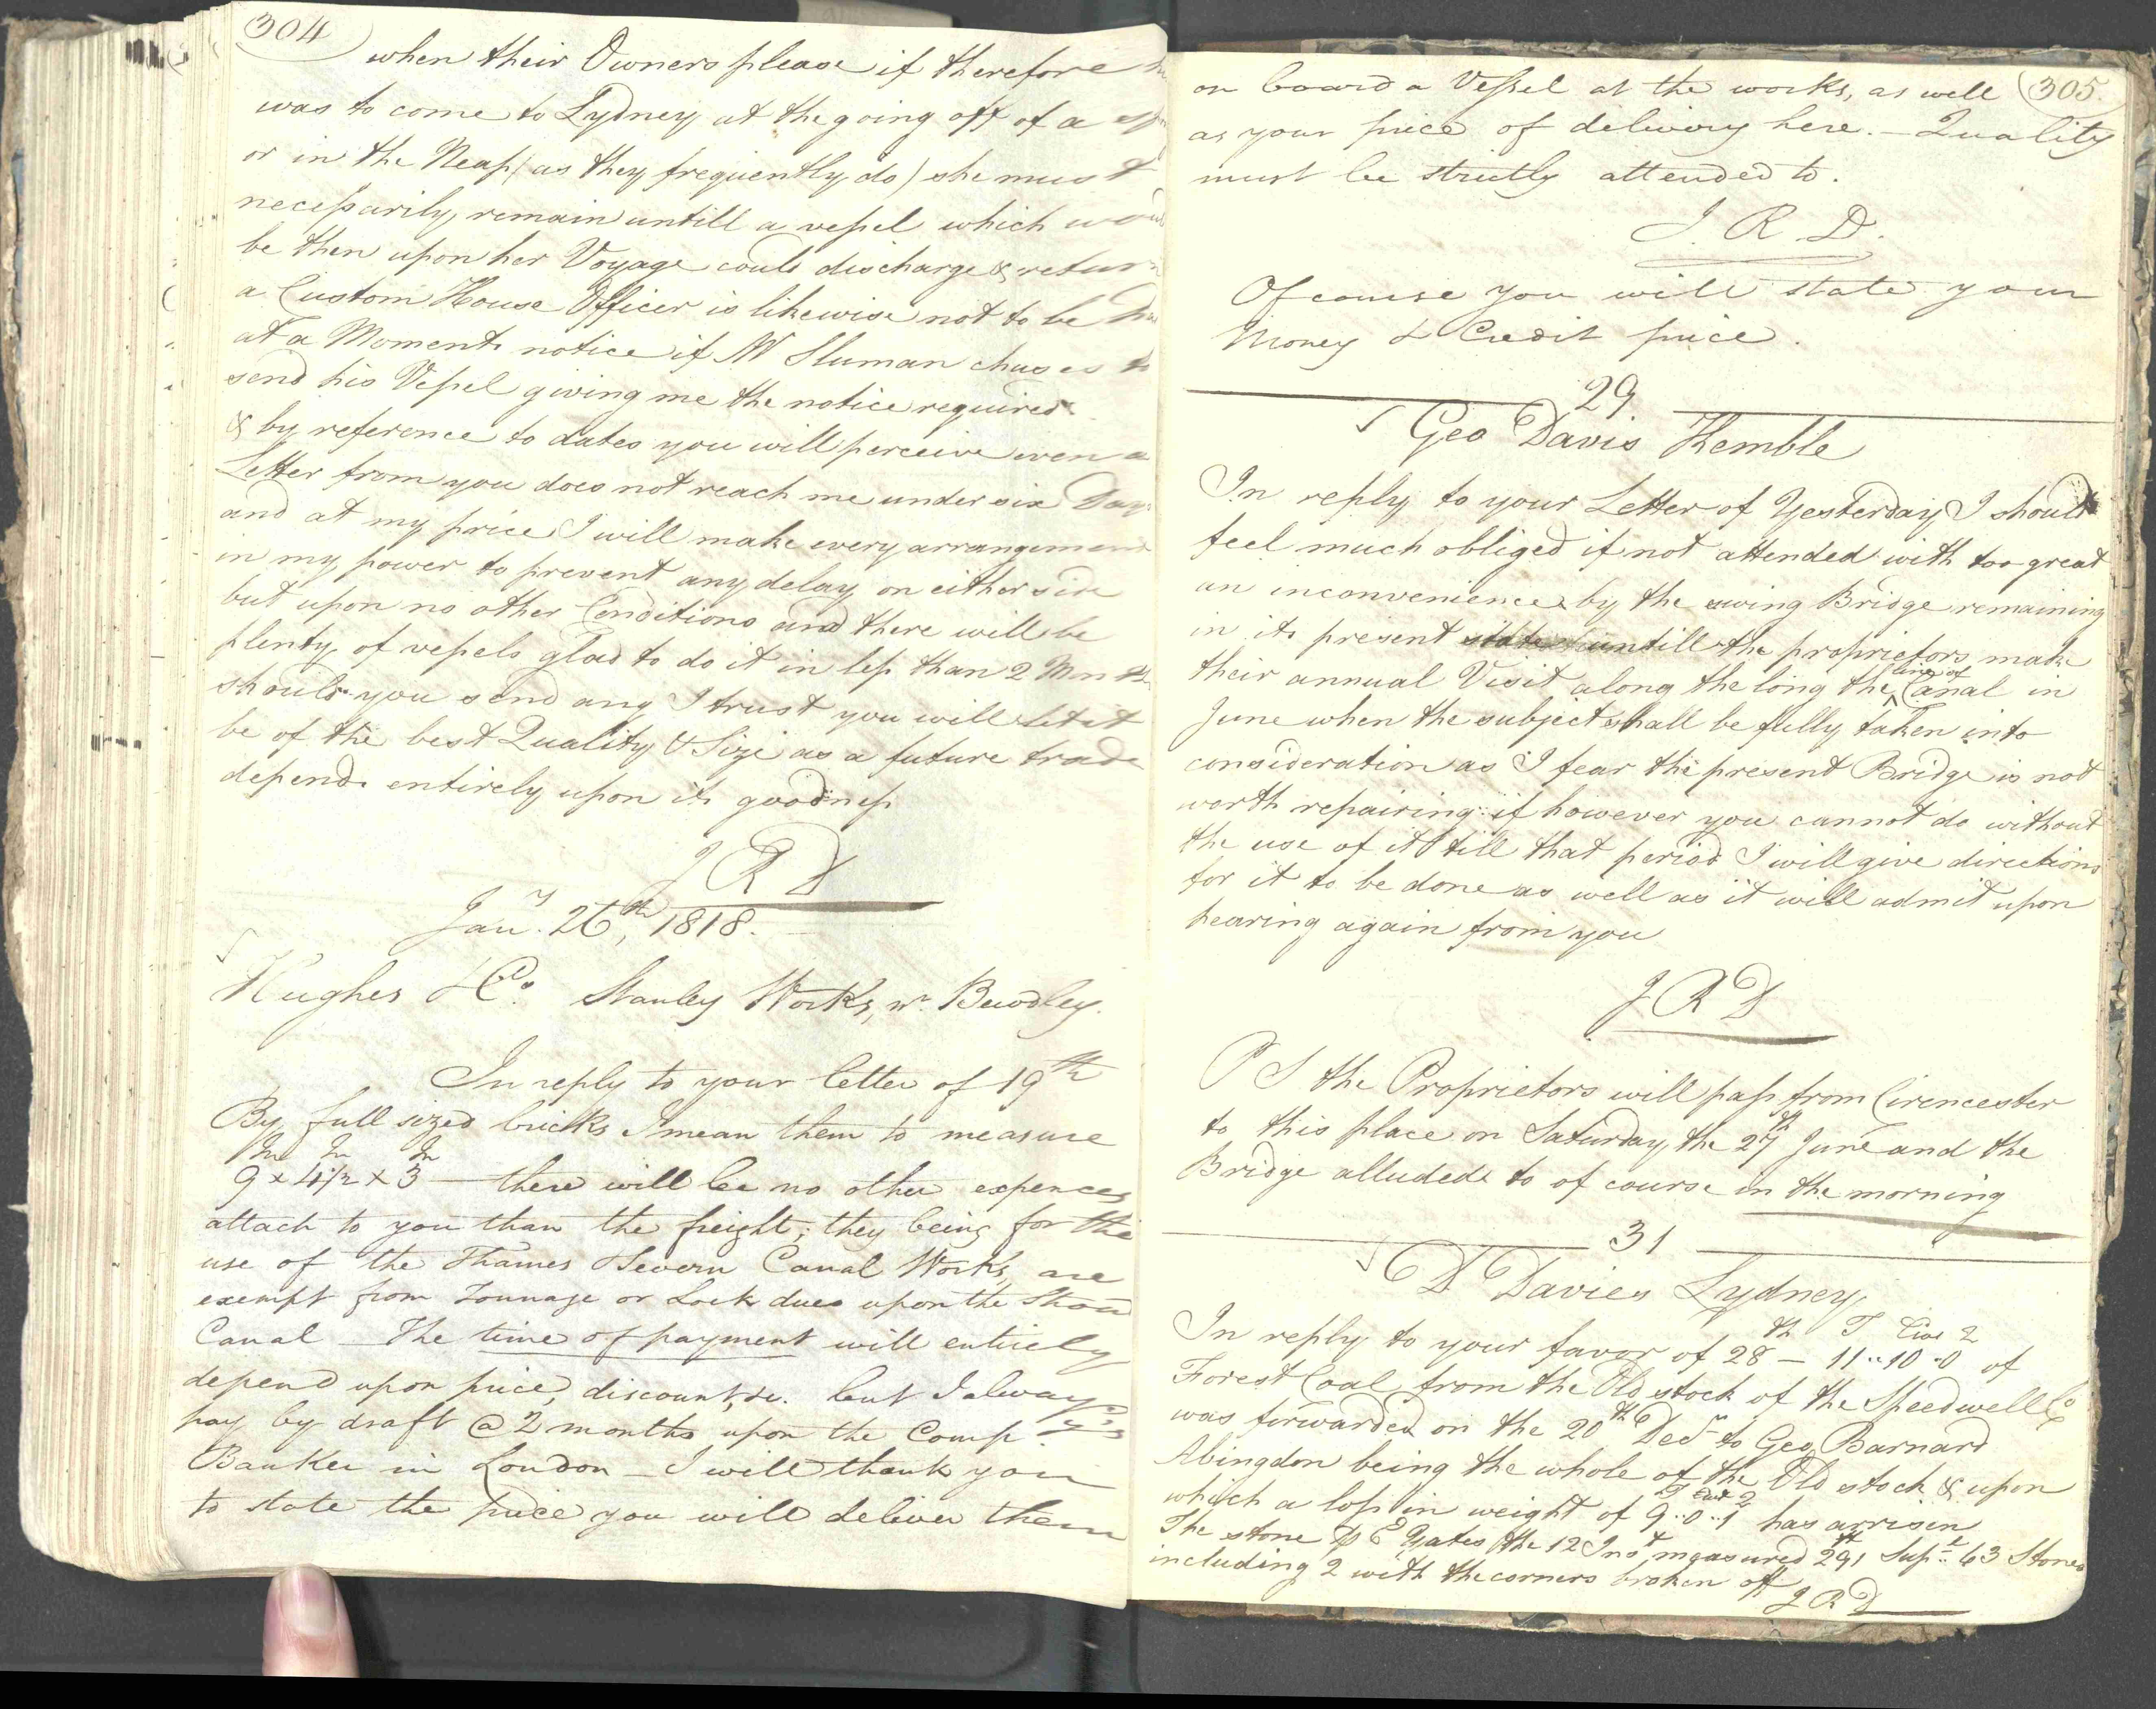 304
when their Owners please if therefore
was to come to Lydney at the going off of a
or in the Neap (as they frequently do) she must
necessarily remain untill a vessel which would
be then upon her Voyage could discharge & return
a Custom House Officer is likewise not to be had
at a Moments notice if Mr Sluman chuses to
send his Vessel giving me the notice required
& by reference to dates you will perceive even a
Letter from you does not reach me under six Days
and at my price I will make every arrangement
in my power to prevent any delay on either side
but upon no other Conditions and there will be
plenty of vessels glad to do it in less than 2 Months
should you send any I trust you will let it
be of the best Quality & Size as a future trade
depends entirely upon its goodness
J R D
Jany. 26th, 1818.
Hughes & Co. Stanley Works, nr. Bewdley.
In reply to your letter of 19th
By full sized bricks I mean them to measure
In In In
9 x 4 1/2 x 3 — there will be no other expences
attach to you than the freight; they being for the
use of the Thames & Severn Canal Works, are
exempt from Tonnage or Lock dues upon the Stroud
Canal — The time of payment will entirely
depend upon price, discount, &c. but I always
pay by draft @ 2 months upon the Compys
Banker in London — I will thank you
to state the price you will deliver them
305.
on board a Vessel at the works, as well
as your price of delivery here. — Quality
must be strictly attended to.
J. R. D.
Of course you will state your
Money & Credit price.
29.
Geo Davis Kemble
In reply to your Letter of Yesterday I should
feel much obliged if not attended with too great
an inconvenience by the swing Bridge remaining
in its present state untill the proprietors make
their annual Visit along the long the line of Canal in
June when the subject shall be fully taken into
consideration as I fear the present Bridge is not
worth repairing if however you cannot do without
the use of it till that period I will give directions
for it to be done as well as it will admit upon
hearing again from you
J R D
P S the Proprietors will pass from Cirencester
to this place on Saturday, the 27th June and the
Bridge alluded to of course in the morning
31
D Davies Lydney
In reply to your favor of 28th — T 11 Cwt 10 Q 0 of
Forest Coal from the Old stock of the Speedwell Co
was forwarded on the 20th Decr to Geo Barnard
Abingdon being the whole of the Old stock & upon
which a loss in weight of T 9 Cwt 0 Q 1 has arrisen
The stone P E Yates the 12 Inst measured 291 ft Supl 63 Stones
including 2 with the corners broken off
J R D